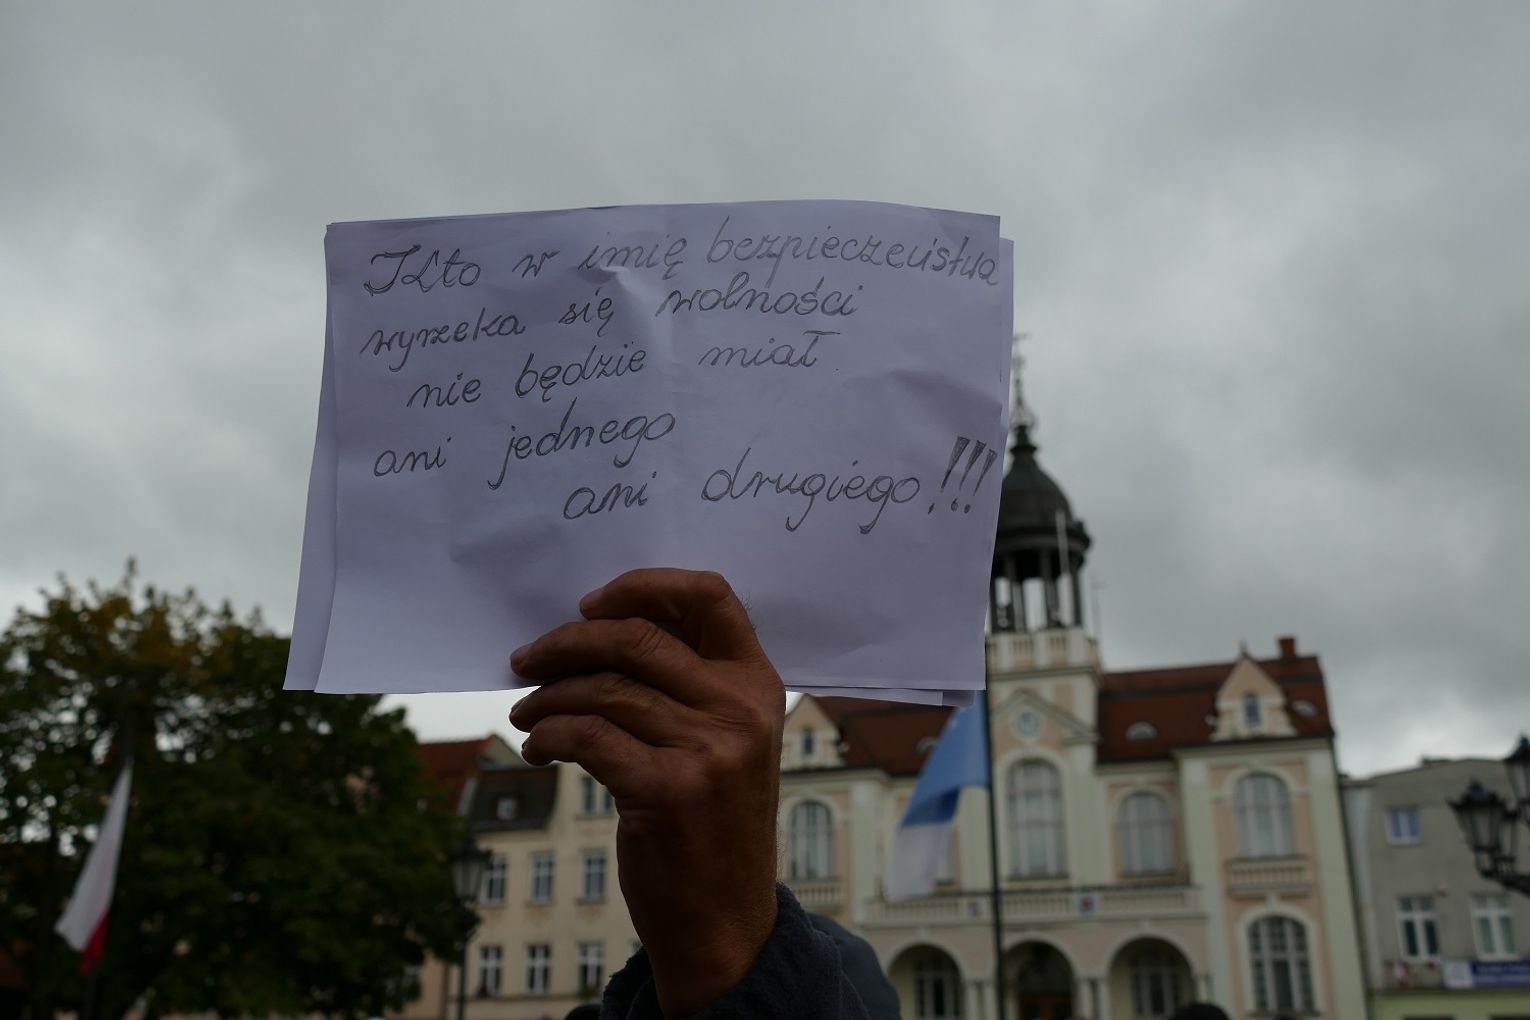 Kto w imię bezpieczeństwa
wyrzeka się wolności
nie będzie miał
ani jednego
ani drugiego!!!